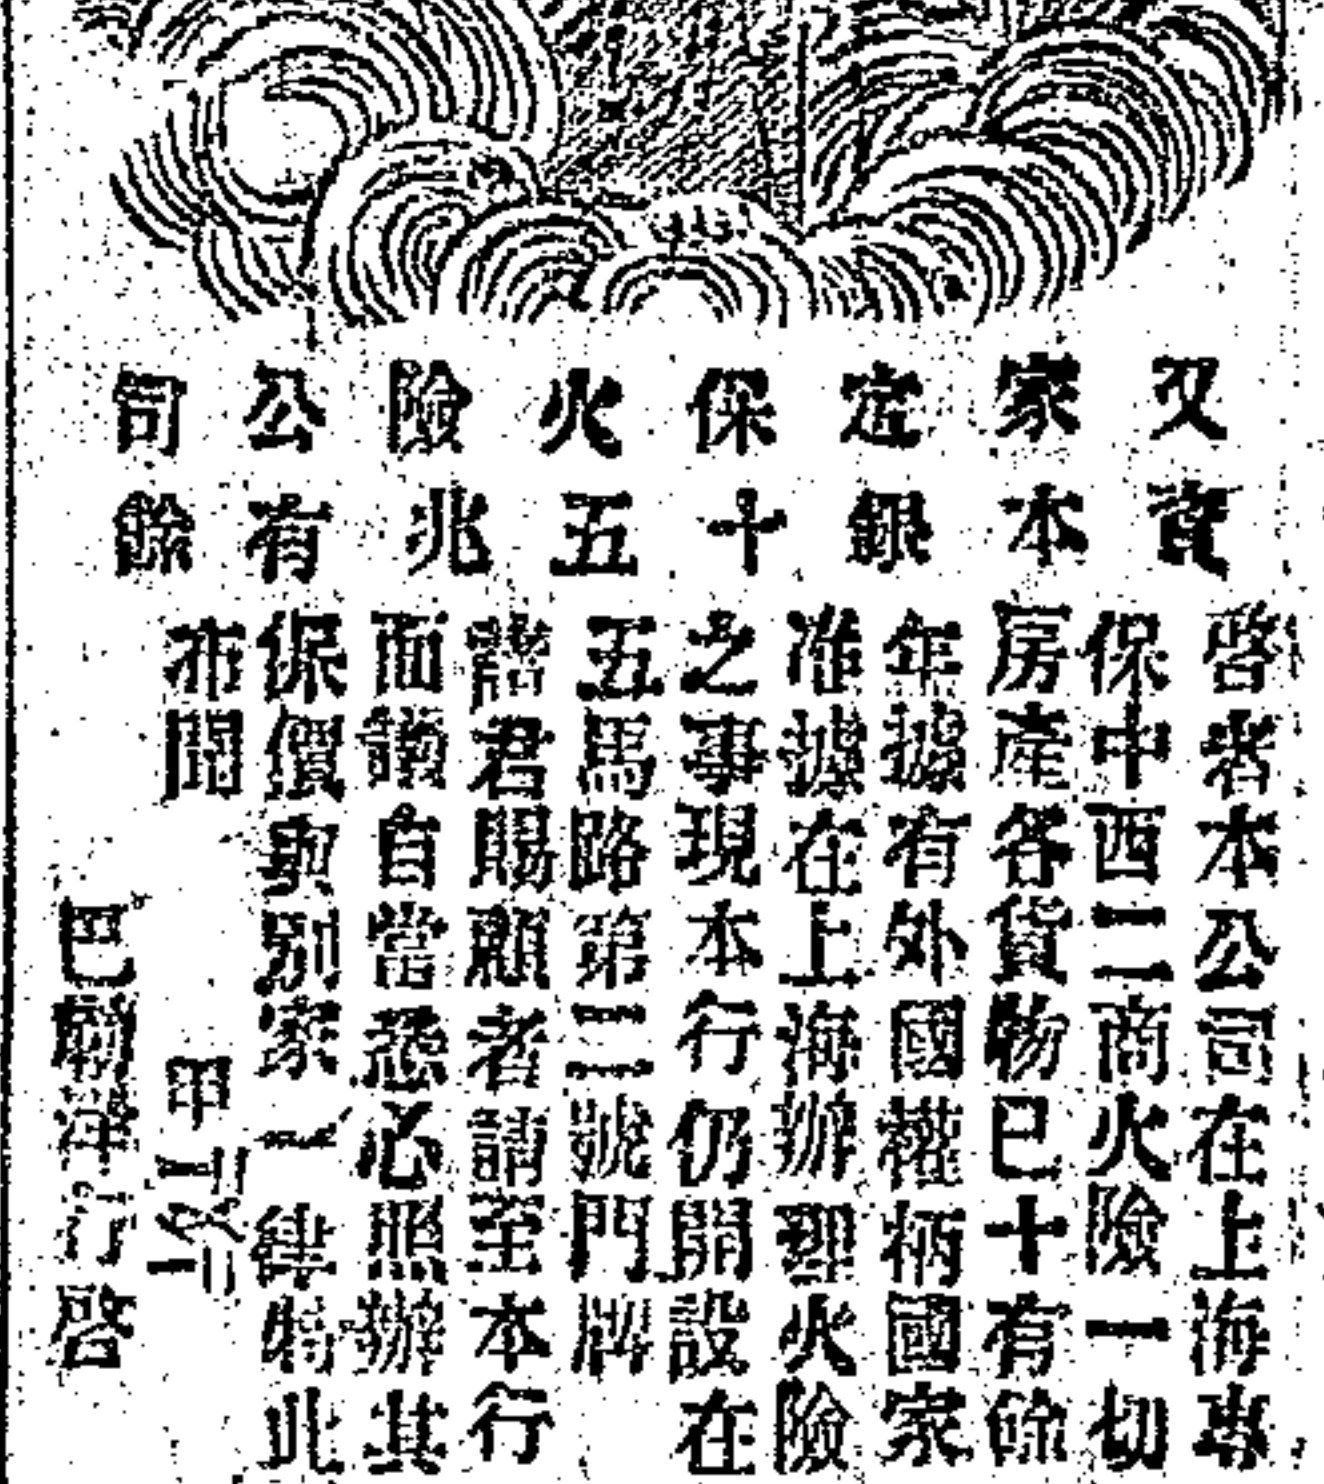 又家定保火險公司
資本銀十五兆有餘
啓者本公司在上海專
保中西二商火險一切
房產各貨物已十有餘
年據有外國權柄國家
准據在上海辦理火險
之事現本行仍開設在
五馬路第二號門牌
諸君賜顧者請至本行
面議自當悉心照辦其
保價與別家一律特此
布聞
甲
巴 行啓